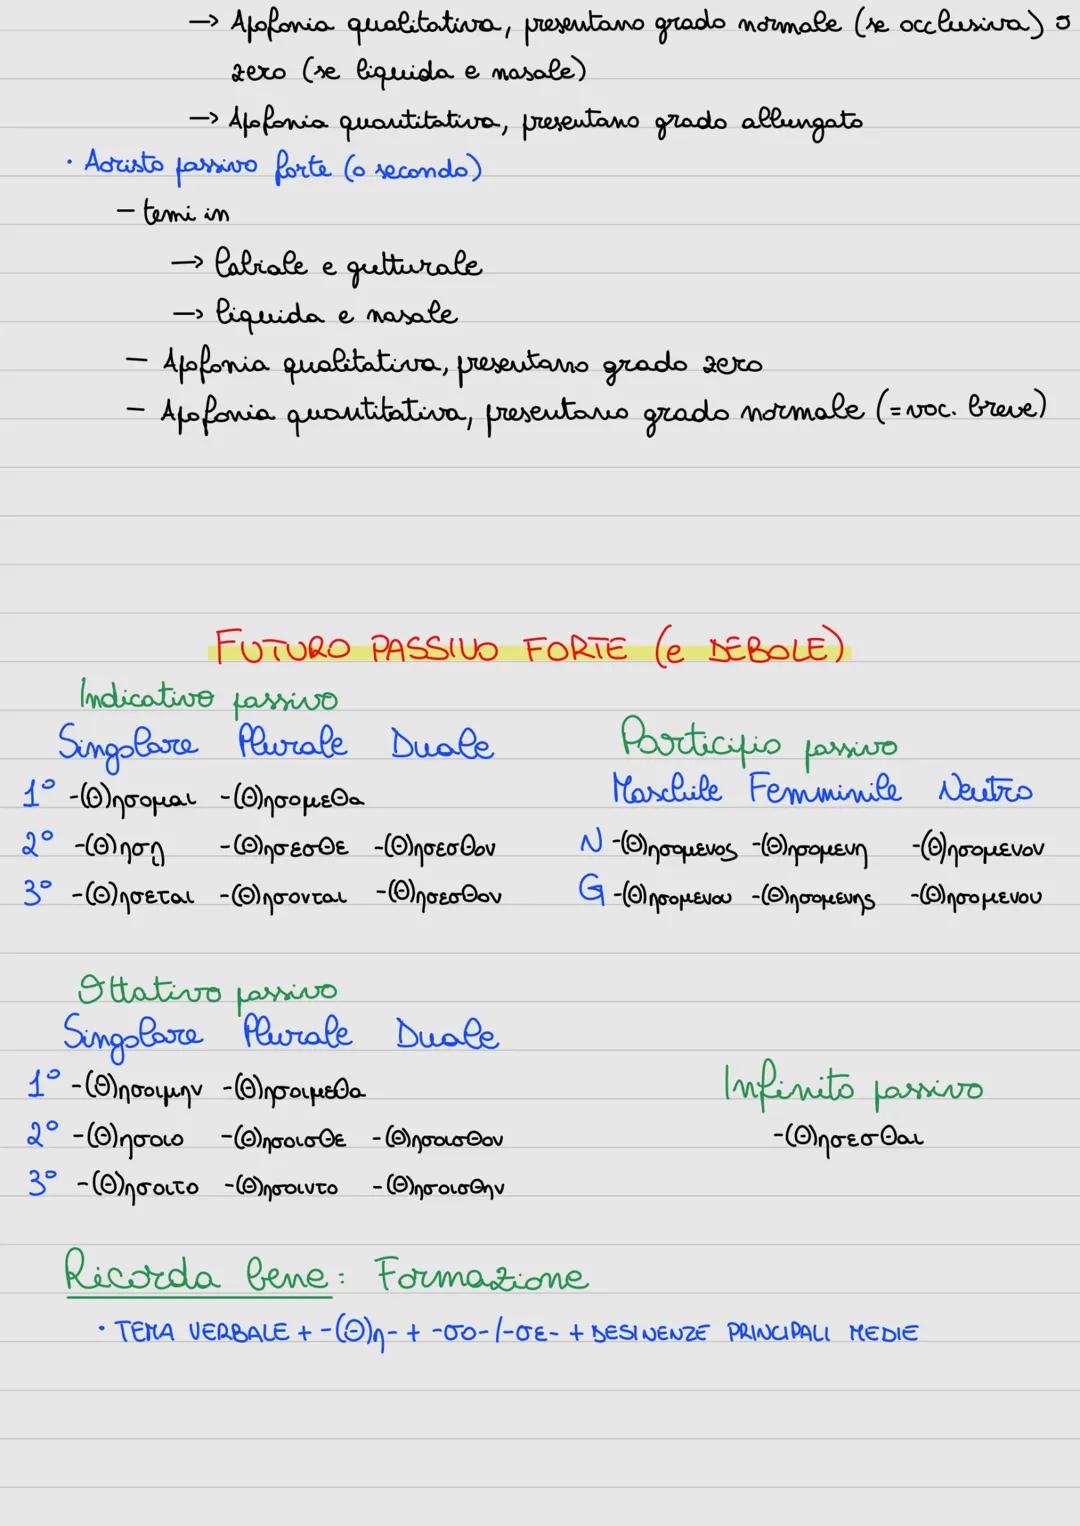 → Apofonia qualitativa, presentano grado normale (se occlusiva) o
zero (se liquida e nasale)
→ Apofonia quantitativa, presentano grado allungato
· Aoristo passivo forte (o secondo)
- temi in
→ labiale e gutturale
→ liquida e nasale
- Apofonia qualitativa, presentano grado zero
- Apofonia quantitativa, presentano grado normale (= voc. breve)
FUTURO PASSIVO FORTE (e DEBOLE)
Indicativo passivo
Singolare Plurale Duale
1° -(θ)ησομαι -(θ)ησομεθα
2° -(θ)ησῃ -(θ)ησεσθε -(θ)ησεσθον
3° -(θ)ησεται -(θ)ησονται -(θ)ησεσθον
Participio passivo
Maschile Femminile Neutro
N -(θ)ησομενος -(θ)ησομενη -(θ)ησομενον
G -(θ)ησομενου -(θ)ησομενης -(θ)ησομενου
Ottativo passivo
Singolare Plurale Duale
1° -(θ)ησοιμην -(θ)ησοιμεθα
2° -(θ)ησοιο -(θ)ησοισθε -(θ)ησοισθον
3° -(θ)ησοιτο -(θ)ησοιντο -(θ)ησοισθην
Infinito passivo
-(θ)ησεσθαι
Ricorda bene: Formazione
· TEMA VERBALE + -(θ)η- + -σο-/-σε- + DESINENZE PRINCIPALI MEDIE